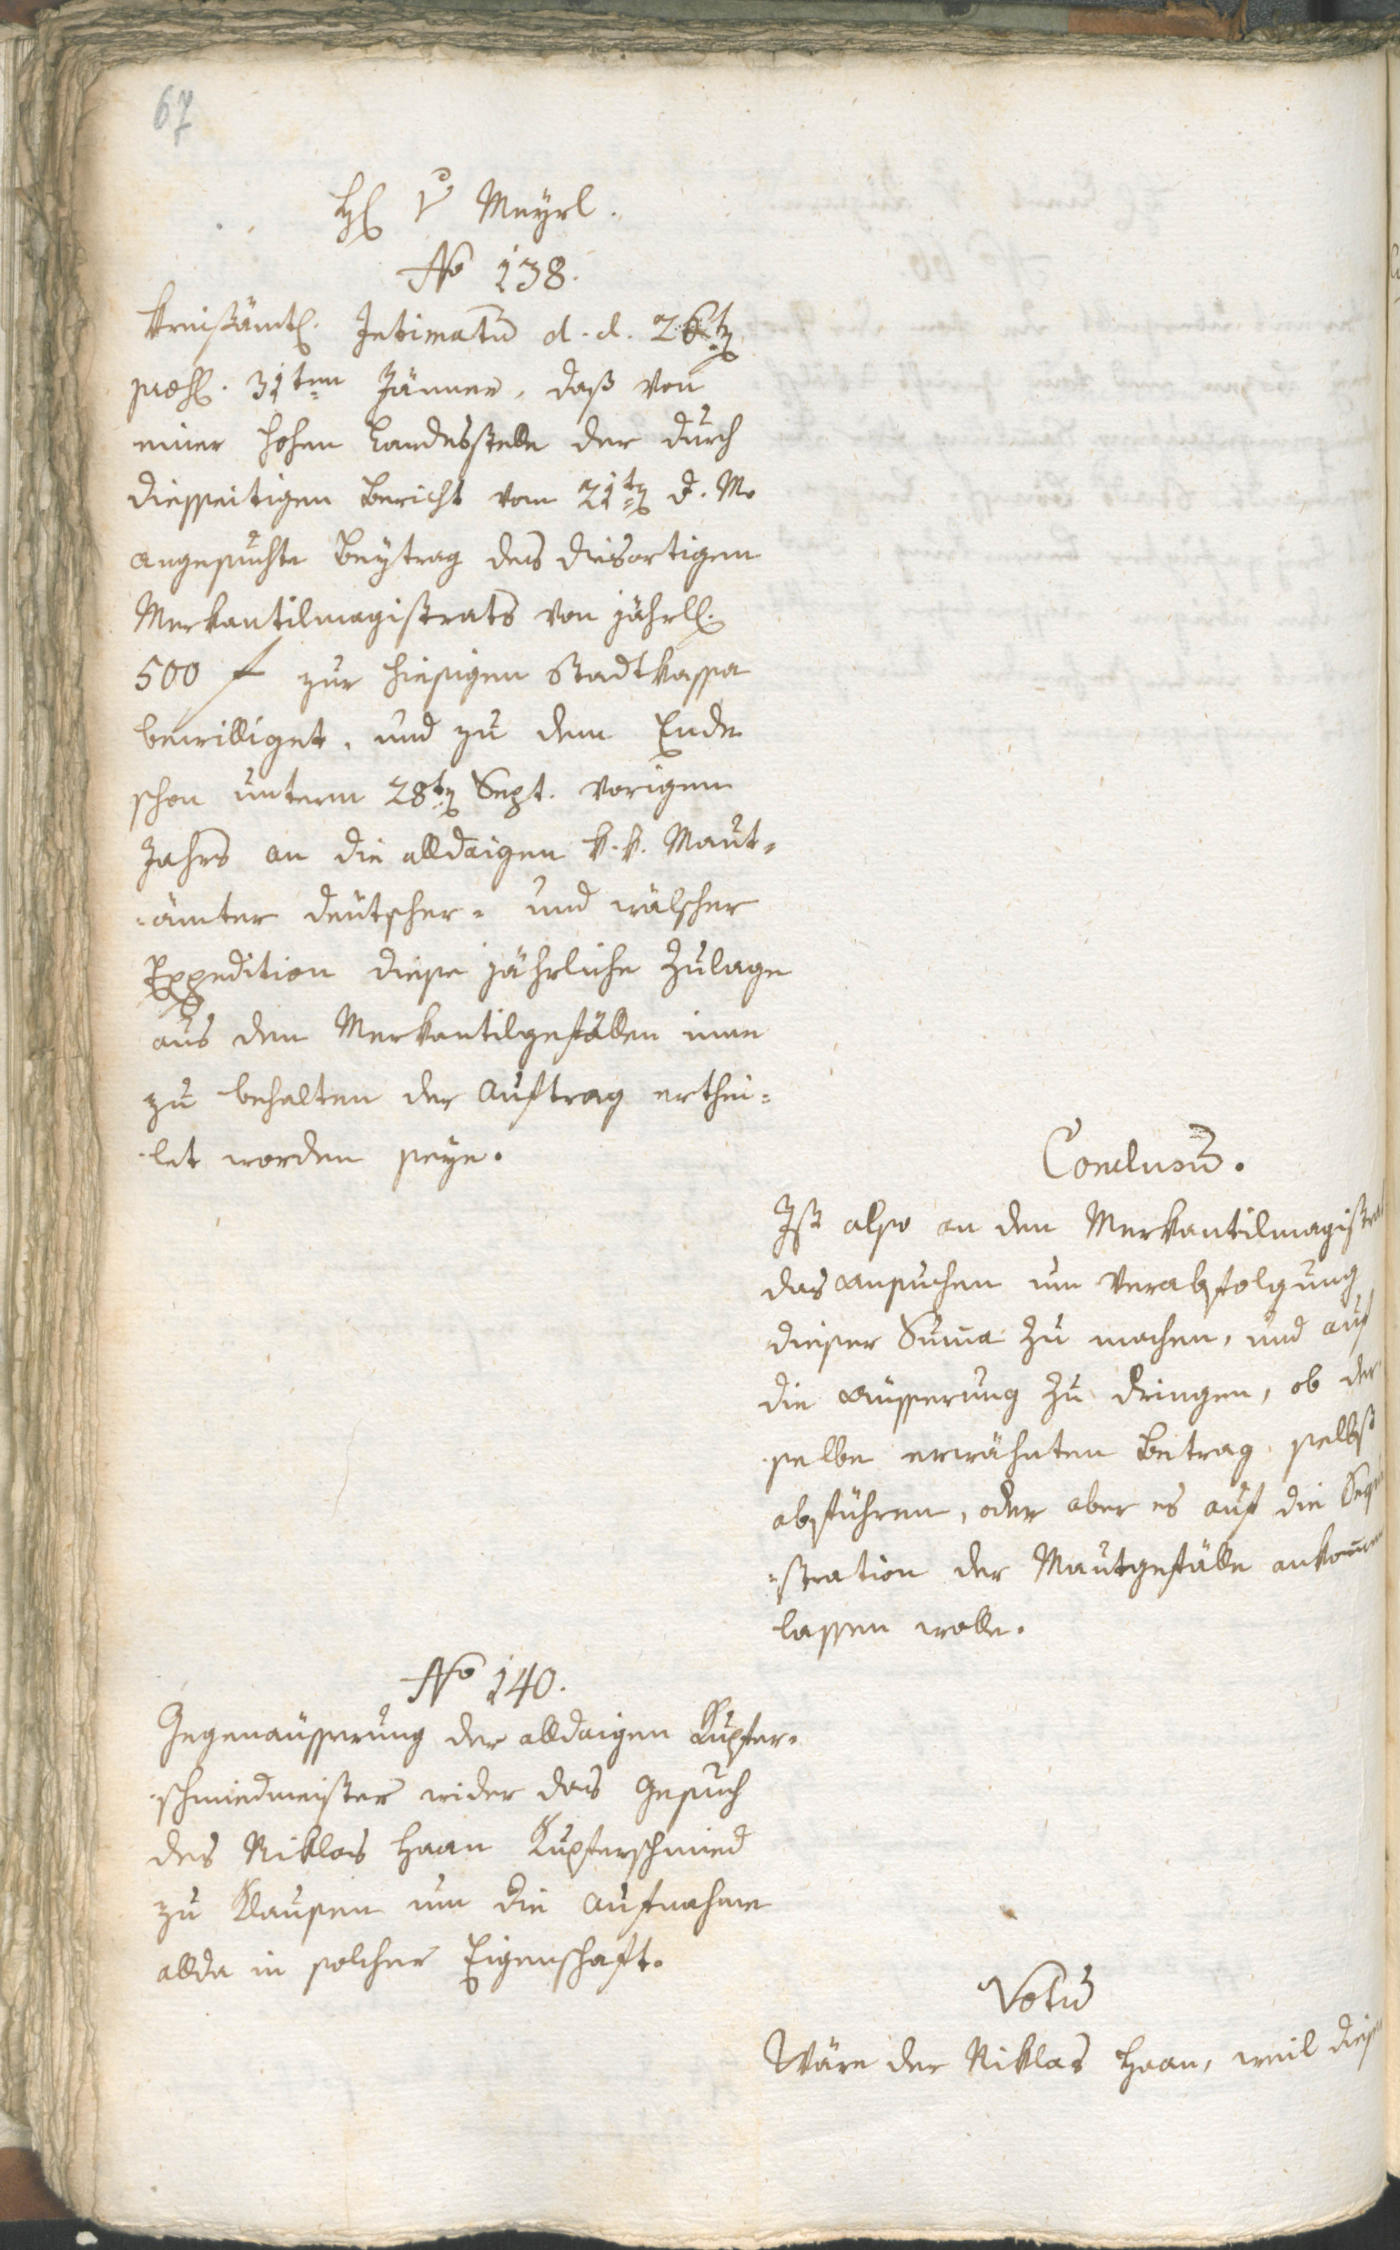 67
H. v Mayrl.
No 138.
Kreißämtl. Intimatum d. d. 26ten
präs. 31ten Jänner, daß von
einer hohen Landesstelle der durch
diesseitigen Bericht vom 21ten d. M.
angesuchte Beytrag des diesortigen
Merkantilmagistrats von jährl.
500 f zur hiesigen Stadtkassa
bewilliget, und zu dem Ende
schon unterm 28ten Sept. vorigen
Jahrs an die alldaigen k. k. Maut-
-ämter deutscher- und wälscher
Expedition diese jährliche Zulage
aus den Merkantilgefällen inne
zu behalten der Auftrag erthei-
-let worden seye.
Conclusum.
Ist also an den Merkantilmagistrat
das Ansuchen um Verabfolgung
dieser Summa zu machen, und auf
die Äusserung zu dringen, ob der
selbe erwähnten Betrag selbst
abführen, oder aber es auf die Seque
-stration der Mautgefälle ankommen
lassen wolle.
No 140.
Gegenäusserung der alldaigen Kupfer-
-schmiedmeister wider das Gesuch
des Niklas Haan Kupferschmied
zu Klausen um die Aufnahme
allda in solcher Eigenschaft.
Votum
Wäre der Niklas Haan, weil dieser